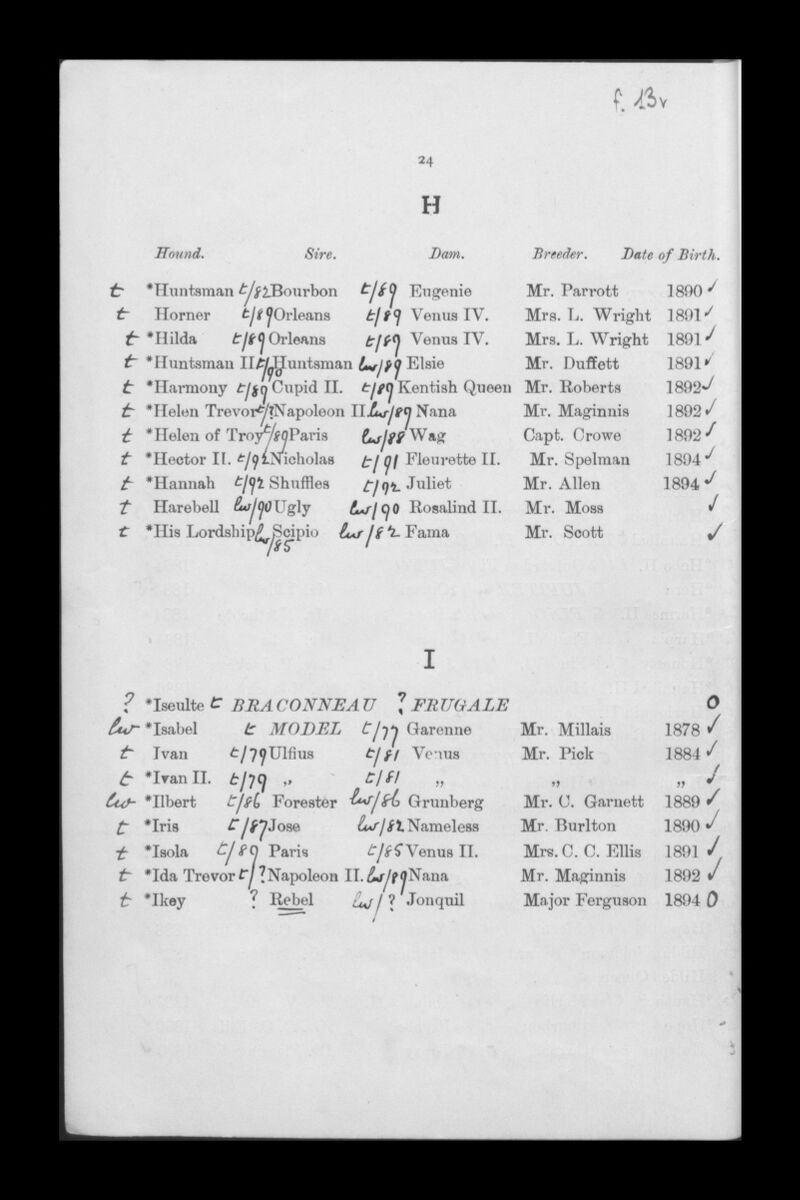 f. 13v
24
H
Hound. Sire. Dam. Breeder. Date of Birth.
t *Huntsman t/82 Bourbon t/89 Eugenie Mr. Parrott 1890 ✓
t Horner t/89 Orleans t/89 Venus IV. Mrs. L. Wright 1891 ✓
t *Hilda t/89 Orleans t/89 Venus IV. Mrs. L. Wright 1891 ✓
t *Huntsman II. t/90 Huntsman lw/89 Elsie Mr. Duffett 1891 ✓
t *Harmony t/89 Cupid II. t/89 Kentish Queen Mr. Roberts 1892 ✓
t *Helen Trevor t/? Napoleon II. lw/89 Nana Mr. Maginnis 1892 ✓
t *Helen of Troy t/89 Paris lw/88 Wag Capt. Crowe 1892 ✓
t *Hector II. t/92 Nicholas t/91 Fleurette II. Mr. Spelman 1894 ✓
t *Hannah t/92 Shuffles t/92 Juliet Mr. Allen 1894 ✓
t Harebell lw/90 Ugly lw/90 Rosalind II. Mr. Moss ✓
t *His Lordship lw/85 Scipio lw/82 Fama Mr. Scott ✓
I
? *Iseulte t BRACONNEAU ? FRUGALE O
lw *Isabel t MODEL t/77 Garenne Mr. Millais 1878 ✓
t Ivan t/79 Ulfius t/81 Venus Mr. Pick 1884 ✓
t *Ivan II. t/79 „ t/81 „ „ „ ✓
lw *Ilbert t/86 Forester lw/86 Grunberg Mr. C. Garnett 1889 ✓
t *Iris t/87 Jose lw/82 Nameless Mr. Burlton 1890 ✓
t *Isola t/89 Paris t/85 Venus II. Mrs. C. C. Ellis 1891 ✓
t *Ida Trevor t/? Napoleon II. lw/89 Nana Mr. Maginnis 1892 ✓
t *Ikey ? Rebel lw/? Jonquil Major Ferguson 1894 O